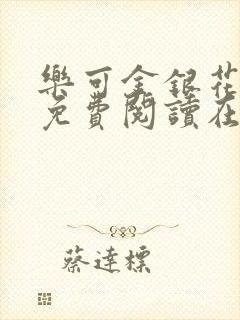 樂可金銀花
免費閱讀在
蔡達標